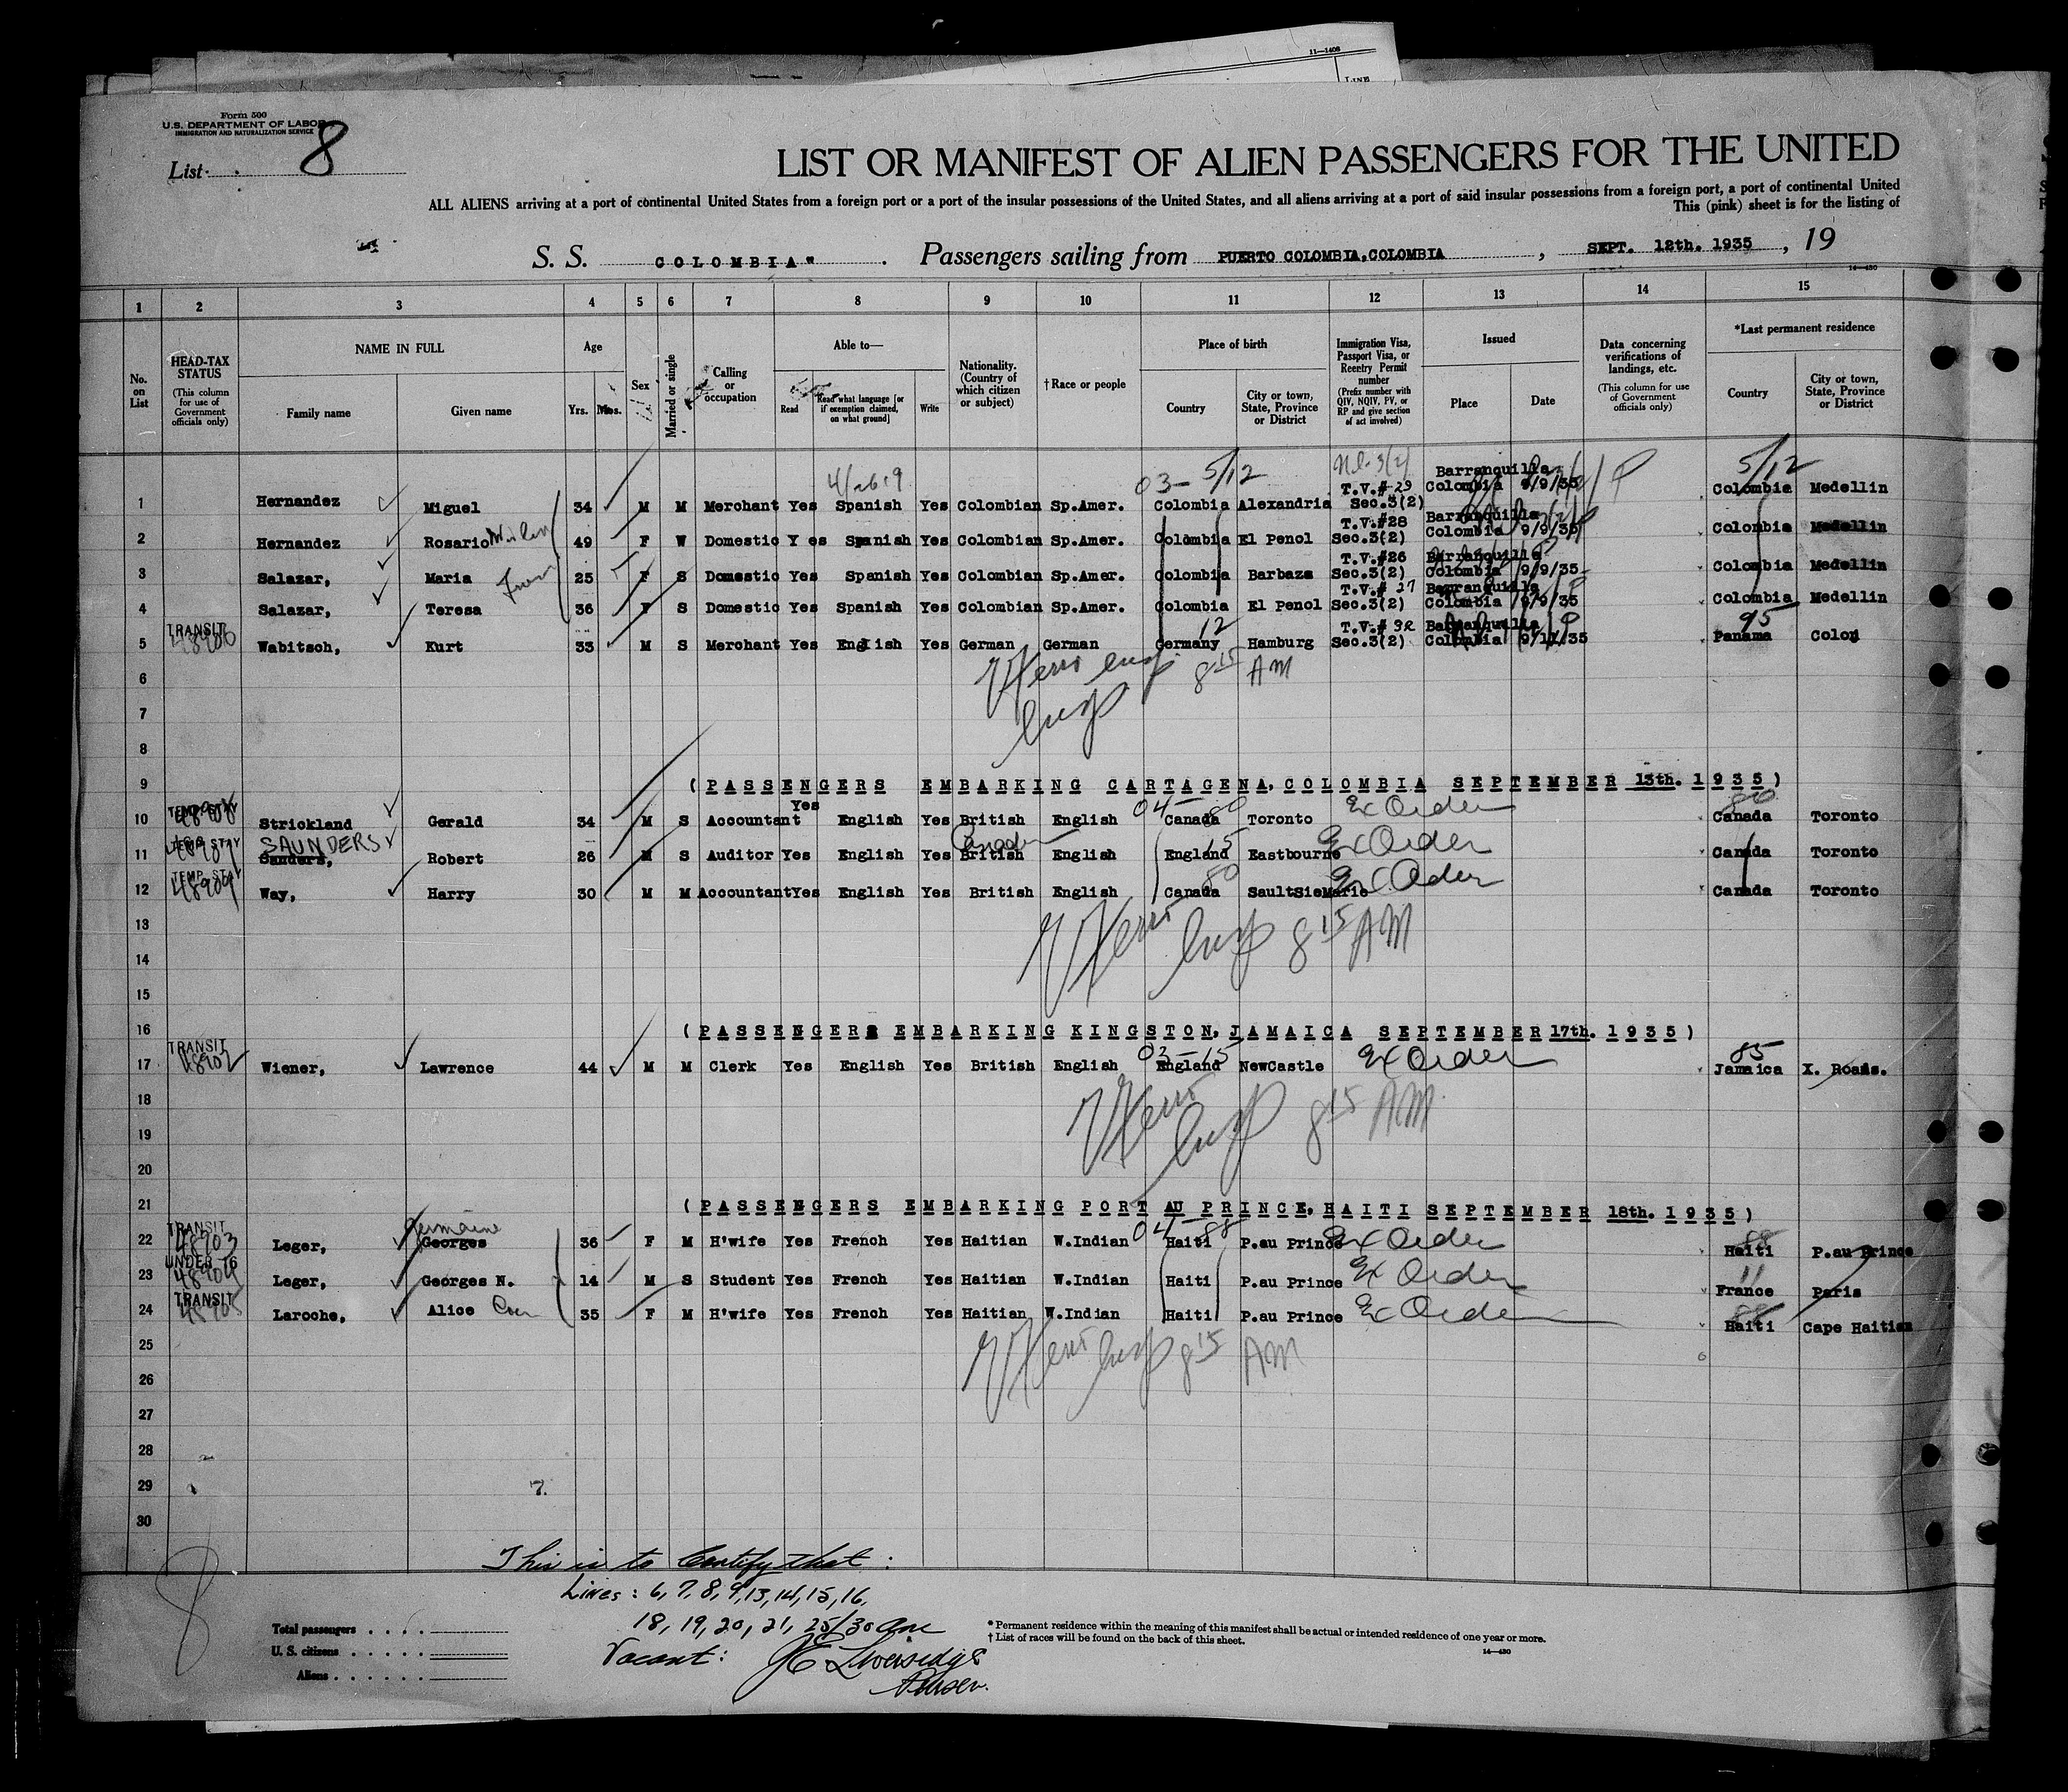 11—1408
LINE
Form 500
U.S. DEPARTMENT OF LABOR
IMMIGRATION AND NATURALIZATION SERVICE
List 8
LIST OR MANIFEST OF ALIEN PASSENGERS FOR THE UNITED
ALL ALIENS arriving at a port of continental United States from a foreign port or a port of the insular possessions of the United States, and all aliens arriving at a port of said insular possessions from a foreign port, a port of continental United
This (pink) sheet is for the listing of
S. S. COLOMBIA" . Passengers sailing from PUERTO COLOMBIA,COLOMBIA , SEPT. 12th. 1935 , 19
14—430
1 2 3 4 5 6 7 8 9 10 11 12 13 14 15
No. on List
HEAD-TAX STATUS (This column for use of Government officials only)
NAME IN FULL Family name Given name
Age Yrs. Mos.
Sex
Married or single
Calling or occupation
Able to— Read Read what language [or if exemption claimed, on what ground] Write
Nationality. (Country of which citizen or subject)
†Race or people
Place of birth Country City or town, State, Province or District
Immigration Visa, Passport Visa, or Reentry Permit number (Prefix number with QIV, NQIV, PV, or RP and give section of act involved)
Issued Place Date
Data concerning verifications of landings, etc. (This column for use of Government officials only)
*Last permanent residence Country City or town, State, Province or District
03— 5/12 5/12
1 Hernandez Miguel 34 M M Merchant Yes Spanish Yes Colombian Sp.Amer. Colombia Alexandria T.V.#29 Sec.3(2) Barranquilla Colombia 9/9/35 Colombia Medellin
2 Hernandez Rosario 49 F W Domestic Yes Spanish Yes Colombian Sp.Amer. Colombia El Penol T.V.#28 Sec.3(2) Barranquilla Colombia 9/9/35 Colombia Medellin
3 Salazar, Maria 25 F S Domestic Yes Spanish Yes Colombian Sp.Amer. Colombia Barbaza T.V.#26 Sec.3(2) Barranquilla Colombia 9/9/35 Colombia Medellin
4 Salazar, Teresa 36 F S Domestic Yes Spanish Yes Colombian Sp.Amer. Colombia El Penol T.V.# 27 Sec.3(2) Barranquilla Colombia 9/9/35 Colombia Medellin
12 95
5 TRANSIT Wabitsch, Kurt 33 M S Merchant Yes English Yes German German Germany Hamburg T.V.# 32 Sec.3(2) Barranquilla Colombia 9/11/35 Panama Colon
6 8 15 AM
7
8
9 (PASSENGERS EMBARKING CARTAGENA,COLOMBIA SEPTEMBER 13th. 1935)
10 TEMP. STAY Strickland Gerald 34 M S Accountant Yes English Yes British English 04— 80 Canada Toronto Ex Order 80 Canada Toronto
11 TEMP. STAY SAUNDERS Sanders, Robert 26 M S Auditor Yes English Yes Canadian British English 15 England Eastbourne Ex Order Canada Toronto
12 TEMP. STAY 48909 Way, Harry 30 M M Accountant Yes English Yes British English 80 Canada SaultSteMarie Ex Order Canada Toronto
13 8 15 AM
14
15
16 (PASSENGERS EMBARKING KINGSTON,JAMAICA SEPTEMBER 17th. 1935)
17 TRANSIT 48902 Wiener, Lawrence 44 M M Clerk Yes English Yes British English 03—15 England NewCastle Ex Order 85 Jamaica X. Roads.
18 8 15 AM
19
20
21 (PASSENGERS EMBARKING PORT AU PRINCE,HAITI SEPTEMBER 18th. 1935)
22 TRANSIT 48903 Leger, Germaine Georges 36 F M H'wife Yes French Yes Haitian W.Indian 04—88 Haiti P.au Prince Ex Order 88 Haiti P.au Prince
23 UNDER 16 48904 Leger, Georges N. 14 M S Student Yes French Yes Haitian W.Indian Haiti P.au Prince Ex Order 11 France Paris
24 TRANSIT 48905 Laroche, Alice 35 F M H'wife Yes French Yes Haitian W.Indian Haiti P.au Prince Ex Order 88 Haiti Cape Haitien
25 8 15 AM
26
27
28
29 7.
30
8
This is to Certify that :
Lines : 6, 7, 8, 9, 13, 14, 15, 16,
18, 19, 20, 21, 25/30 are
Vacant :
Purser.
Total passengers
U. S. citizens
Aliens
* Permanent residence within the meaning of this manifest shall be actual or intended residence of one year or more.
† List of races will be found on the back of this sheet.
14—430